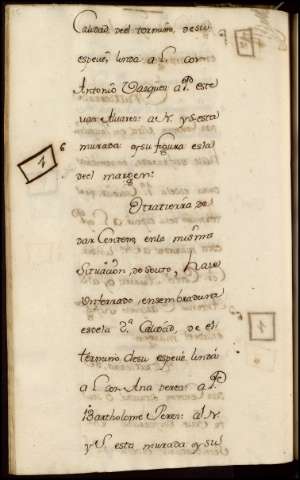 Calidad del termino, desu
espeçie, linda a L. con
Antonio Vazquez a P. este
van Alvarez a N. y S. esta
murada y su figura es la
del margen:
Otra tierra de
dar Centeno, en la misma
Situazion, de Souto, haze
un ferrado, en sembradura
es de la 2ª Calidad, de el
termino desu espeçie linda
a L. con Ana Perez: a Pte
Bartholome Perez: a N
y S esta murada y su
6
1